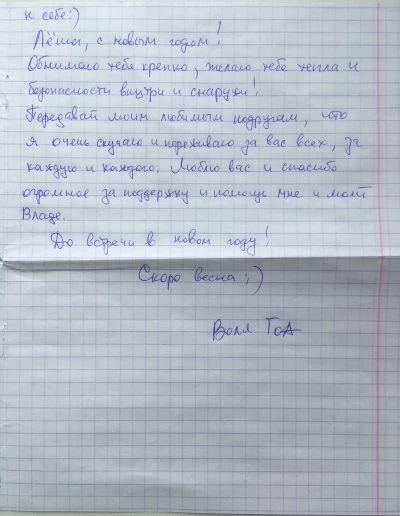 к себе:)
Лёша, с новым годом!
Обнимаю тебя крепко, желаю тебе тепла и
безопасности внутри и снаружи!
Передавай моим любимым подругам, что
я очень скучаю и переживаю за вас всех, за
каждую и каждого. Люблю вас и спасибо
огромное за поддержку и помощь мне и моей
Владе.
До встречи в новом году!
Скоро весна ;)
Воля ТоА